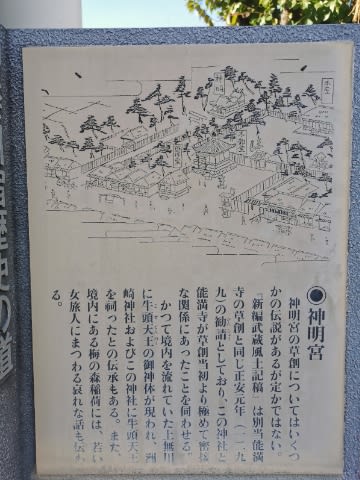 ●神明宮
神明宮の草創についてはいくつ
かの伝説があるが定かではない。
『新編武蔵風土記稿』は別当能満
寺の草創と同じ正安元年（一二九
九）の勧請としており、この神社と
能満寺が草創当初より極めて密接
な関係にあったことを伺わせる。
かつて境内を流れていた上無川
に牛頭天王の御神体が現われ、洲
崎神社およびこの神社に牛頭天王
を祀ったとの伝承もある。また、
境内にある梅の森稲荷には、若い
女旅人にまつわる哀れな話も伝わ
る。
歴史の道